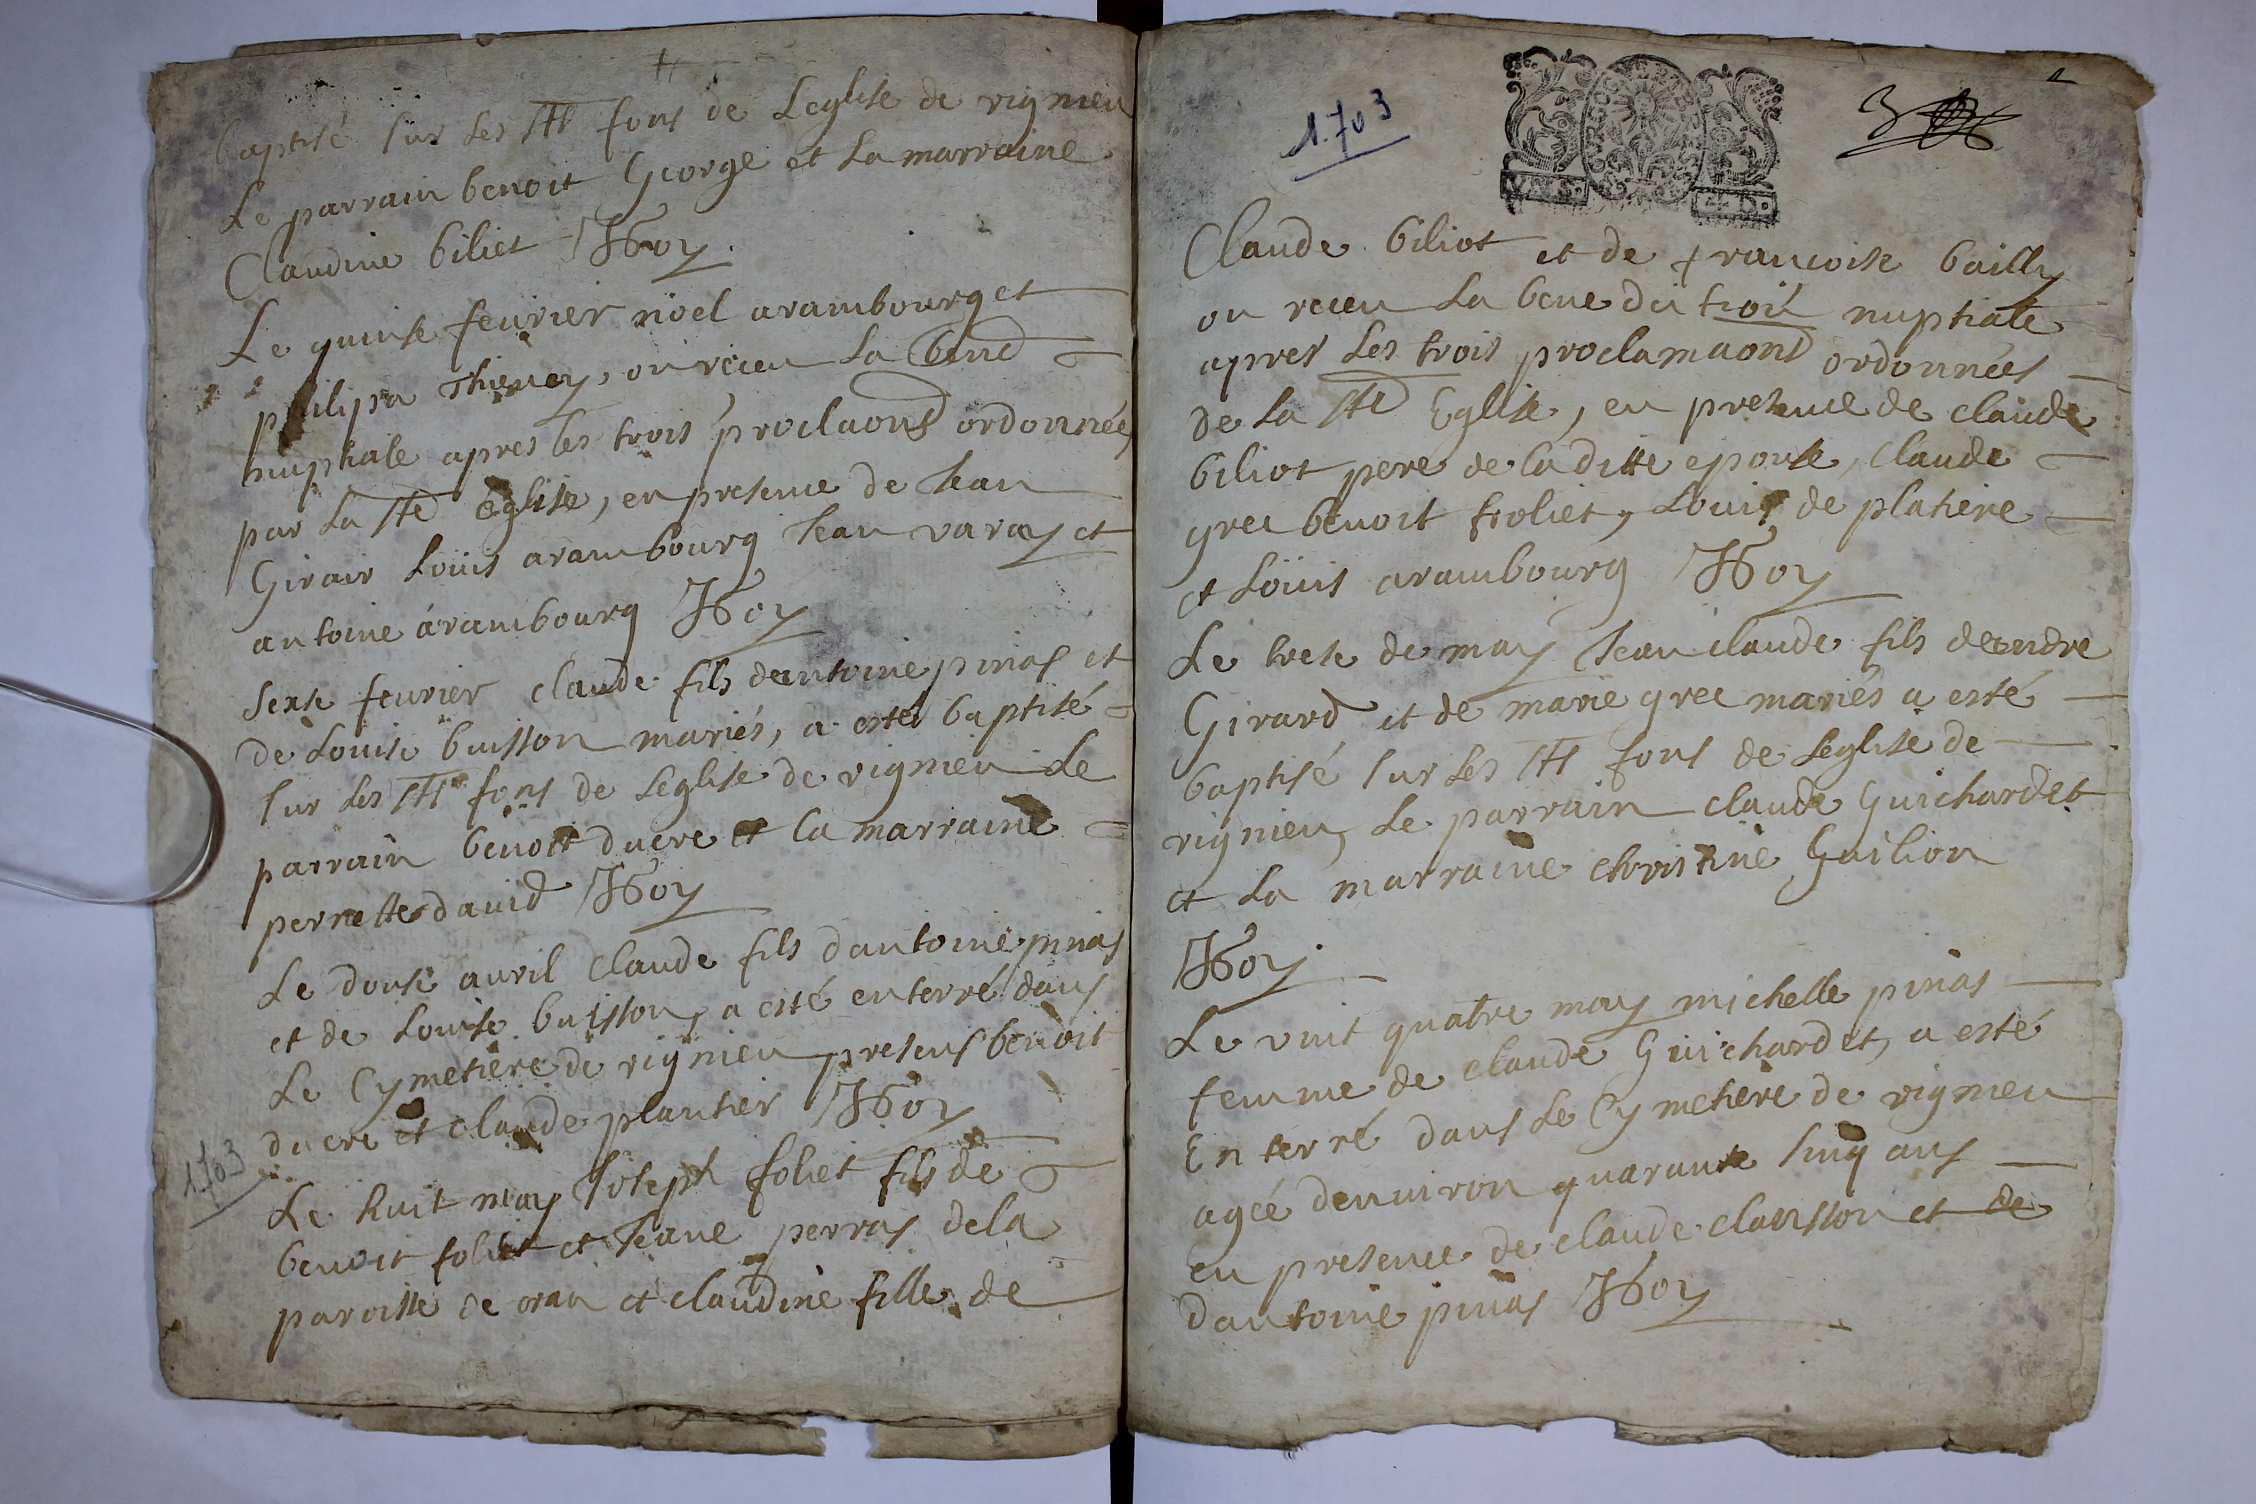 baptisé sur les sts fons de Leglise de vignieu
Le parrain benoit George et La marraine
Claudine biliet Roy
Le quinse feurier noel arambourg et
philipa Thieuoy, on receu La bened
nuptiale apres les trois proclaons ordonnées
par La ste Eglise, en presence de Jean
Girair Loüis arambourg Jean varay et
antoine arambourg Roy
sexte feurier claude fils deantoine pinas et
de Louise buisson mariés, a esté baptisé
sur Les sts fons de Leglise de vignieu Le
parrain benoit ducre et La marraine
perrette dauid Roy
Le douse auril Claude fils dantoine pinas
et de Louise buisson, a esté enterré dans
Le Cymetiere de vignieu presens benoit
ducre et claude plantier Roy
1703
Le huit may Joseph foliet fils de
benoit foliet et Jeane perras dela
paroisse de oran et claudine fille de
1703
3
Claude biliot et de francoise bailly
on receu La benedition nuptiale
apres Les trois proclamaons ordonnées
de La ste Eglise, en presence de claude
biliot pere de laditte epouse, Claude
gree benoit froliet, Louis de platiere
et Loüis arambourg Roy
Le trese de may Jean claude fils deandre
Girard et de marie gree mariés a esté
baptisé sur Les sts fons de Leglise de
vignieu, Le parrain claude Guichardet
et La marraine christine Guilion
Roy
Le vint quatre may michelle pinas
femme de claude Guichardet, a esté
Enterré dans Le Cymetiere de vignieu
ageé denuiron quarante sinq ans
en presence de claude clausson et de
dantoine pinas Roy